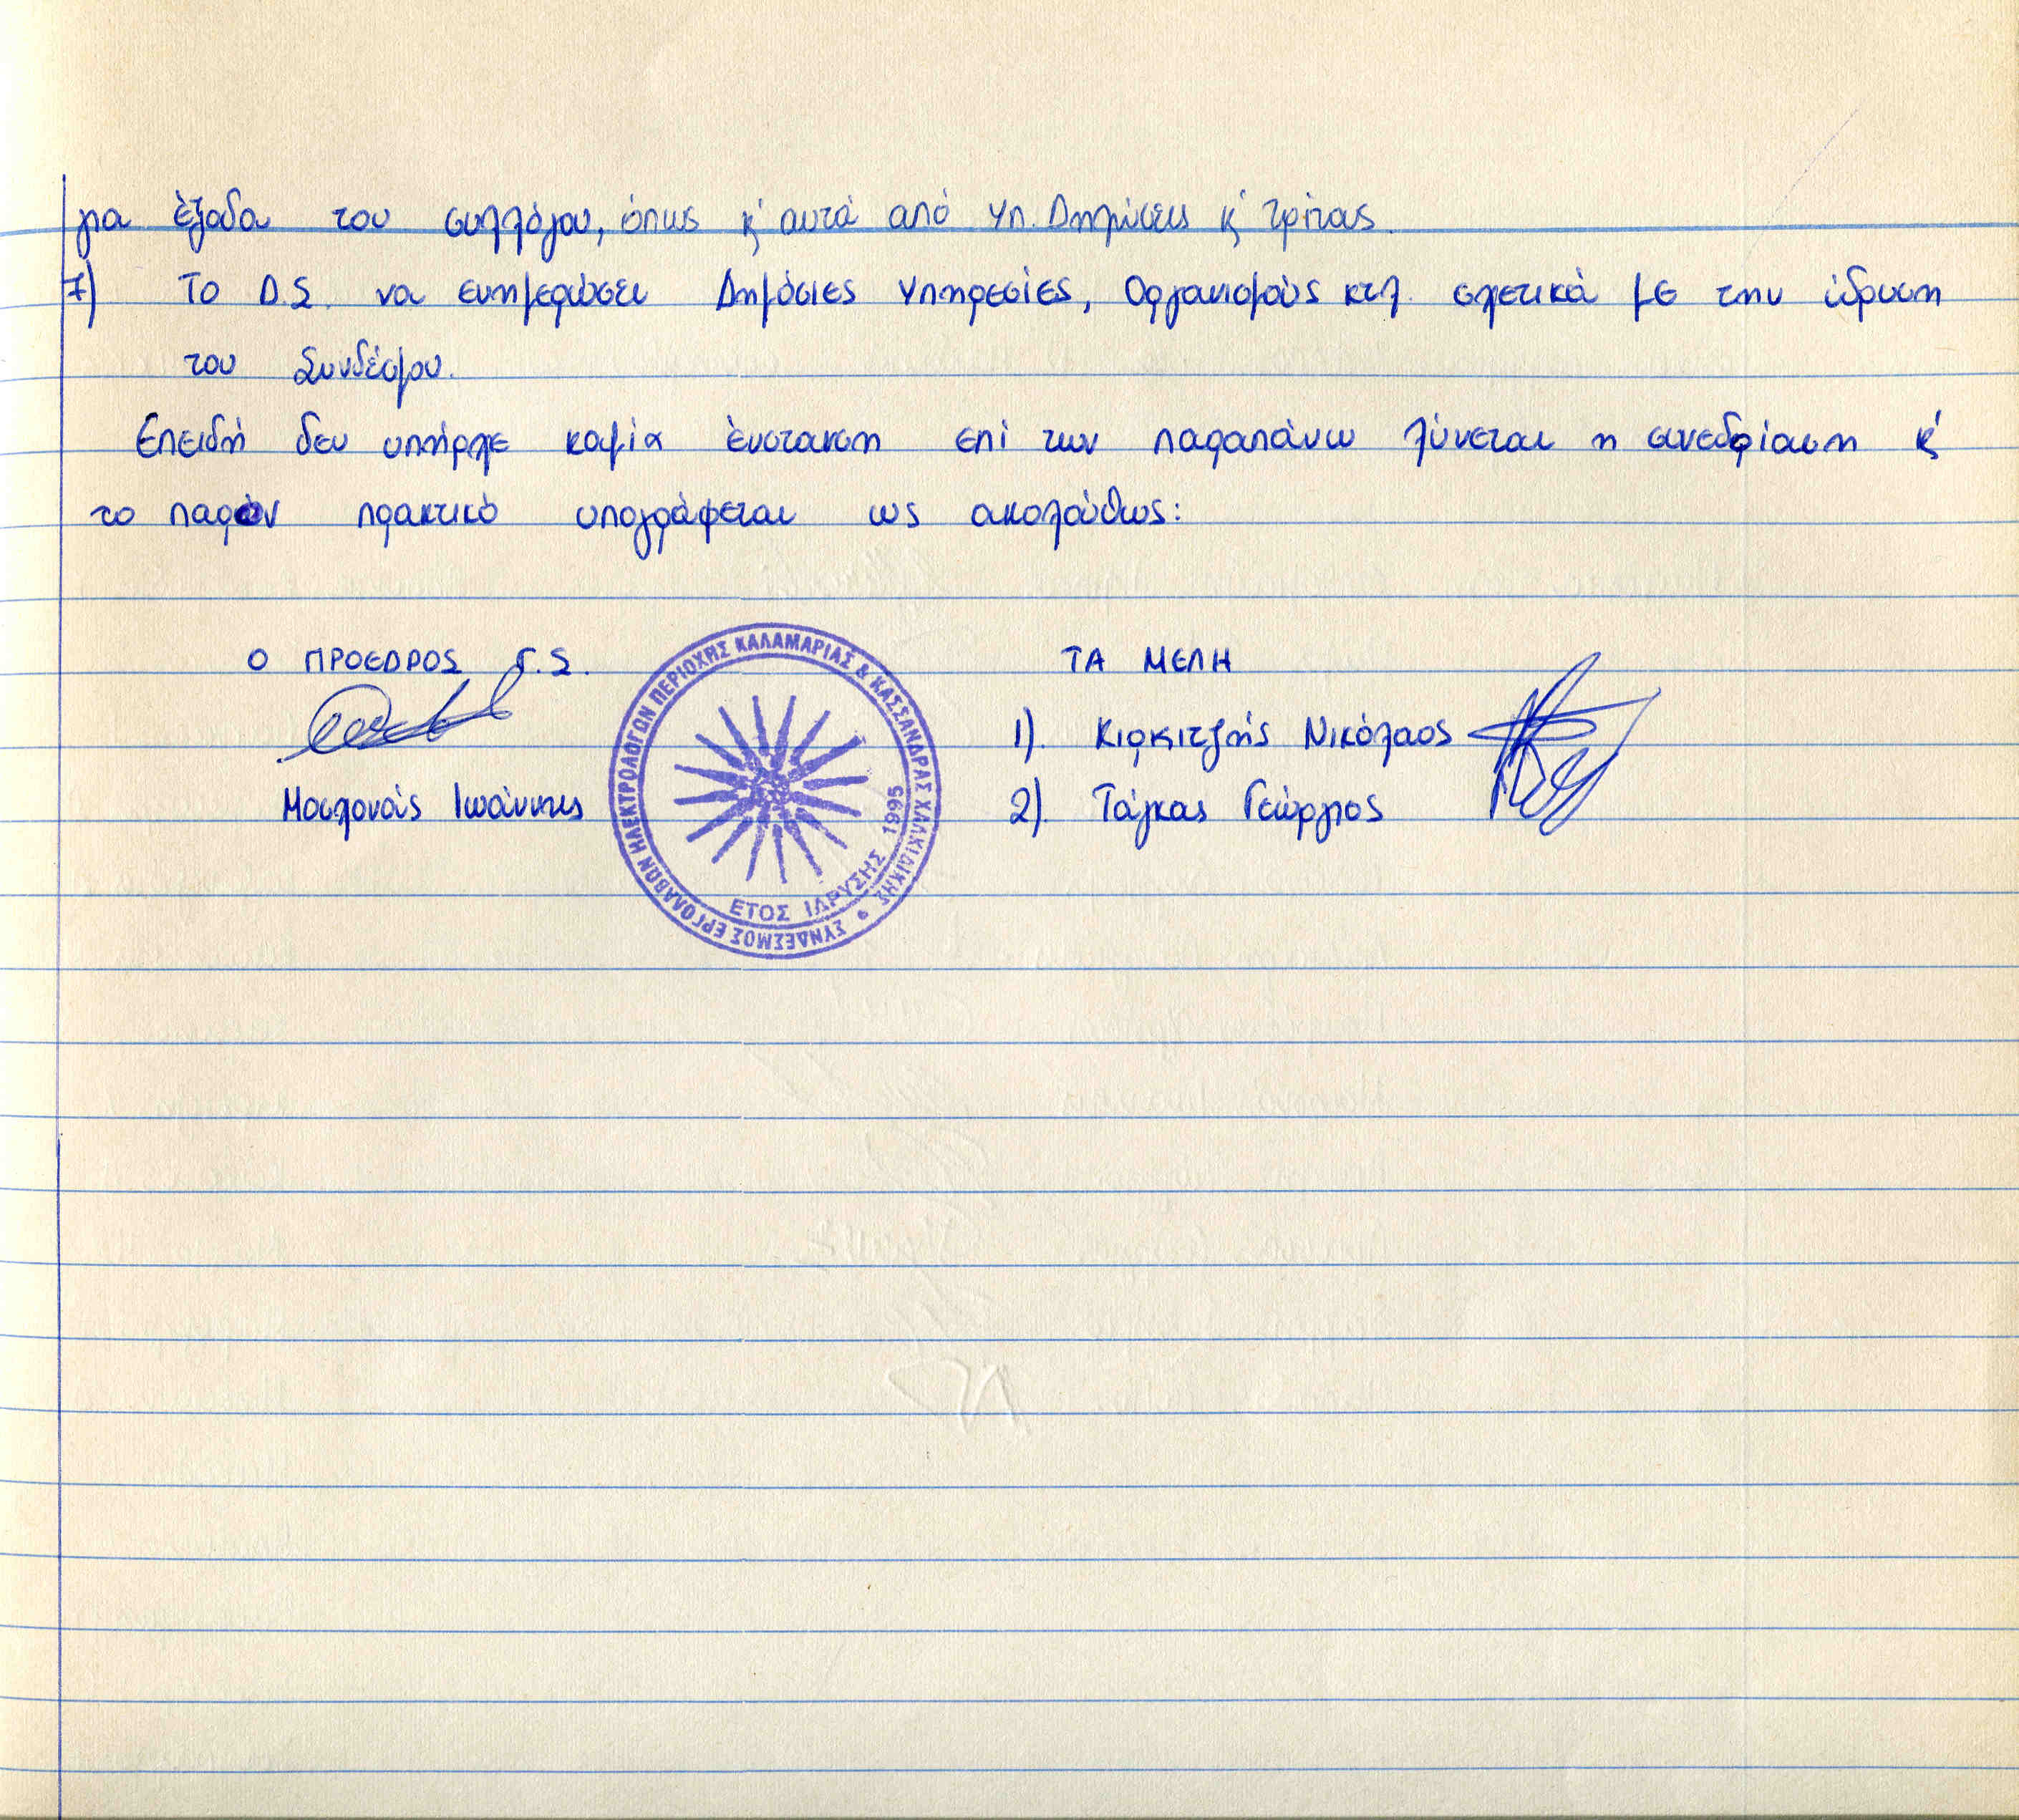 για έξοδα του συλλόγου, όπως κ' αυτά από Υπ. Δηλώσεις κ' τρίτους.
7) Το Δ.Σ. να ενημερώσει Δημόσιες Υπηρεσίες, Οργανισμούς κτλ. σχετικά με την ίδρυση
του Συνδέσμου.
Επειδή δεν υπήρχε καμία ένσταση επί των παραπάνω λύνεται η συνεδρίαση κ'
το παρόν πρακτικό υπογράφεται ως ακολούθως:
Ο ΠΡΟΕΔΡΟΣ Γ.Σ. ΤΑ ΜΕΛΗ
1). Κιρκιτζής Νικόλαος
Μοσχονάς Ιωάννης 2) Τάγκας Γεώργιος
ΣΥΝΔΕΣΜΟΣ ΕΡΓΟΛΑΒΩΝ ΗΛΕΚΤΡΟΛΟΓΩΝ ΠΕΡΙΟΧΗΣ ΚΑΛΑΜΑΡΙΑΣ & ΚΑΣΣΑΝΔΡΑΣ ΧΑΛΚΙΔΙΚΗΣ
ΕΤΟΣ ΙΔΡΥΣΗΣ 1995